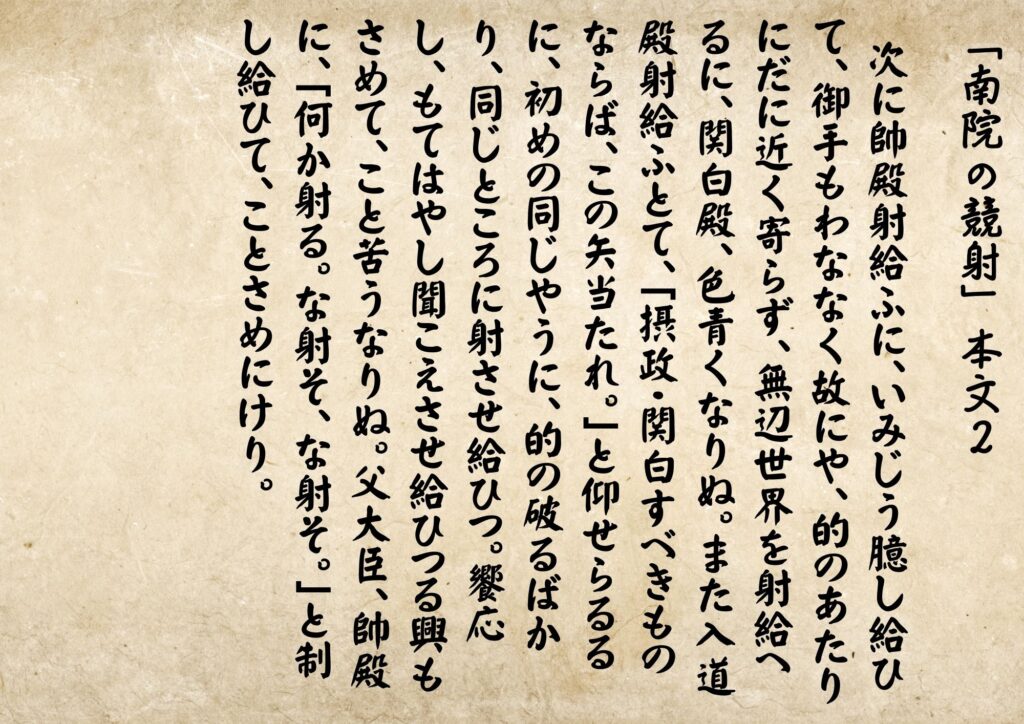 「南院の競射」 本文2
次に帥殿射給ふに、いみじう臆し給ひ
て、御手もわななく故にや、的のあたり
にだに近く寄らず、無辺世界を射給へ
るに、関白殿、色青くなりぬ。また入道
殿射給ふとて、「摂政・関白すべきもの
ならば、この矢当たれ。」と仰せらるる
に、初めの同じやうに、的の破るばか
り、同じところに射させ給ひつ。饗応
し、もてはやし聞こえさせ給ひつる興も
さめて、こと苦うなりぬ。父大臣、帥殿
に、「何か射る。な射そ、な射そ。」と制
し給ひて、ことさめにけり。